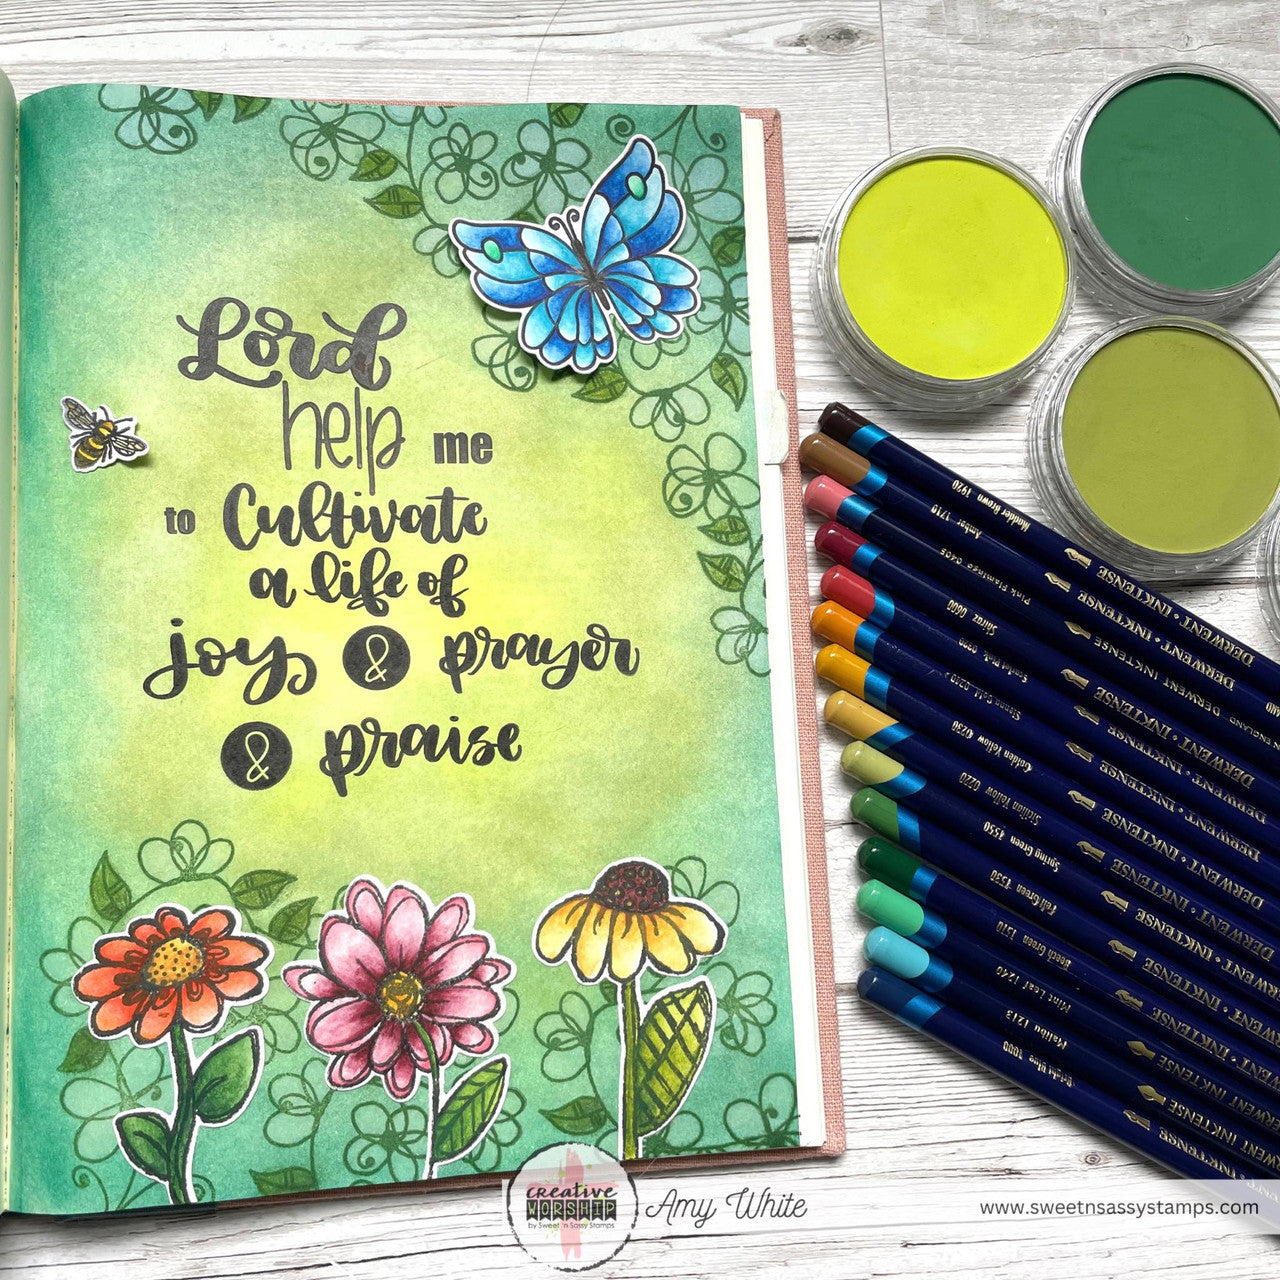 Lord
help me
to Cultivate
a life of
joy & prayer
& praise
Madder Brown 1920
Amber 1710
Pink Flamingo 0405
Shiraz 0600
Scarlet Pink 0320
Sienna Gold 0240
Golden Yellow 0230
Sicilian Yellow 0220
Spring Green 1550
Felt Green 1530
Beech Green 1510
Mint Leaf 1240
Malibu 1213
Bright Blue 1000
DERWENT • INKTENSE
DERWENT INKTENSE
DERWENT • INKTENSE
DERWENT • INKTENSE
DERWENT • INKTENSE
DERWENT • INKTENSE
DERWENT • INKTENSE
DERWENT • INKTENSE
DERWENT • INKTENSE
DERWENT • INKTENSE
DERWENT INKTENSE
creative
WORSHIP
by Sweet 'n Sassy Stamps
Amy White
www.sweetnsassystamps.com